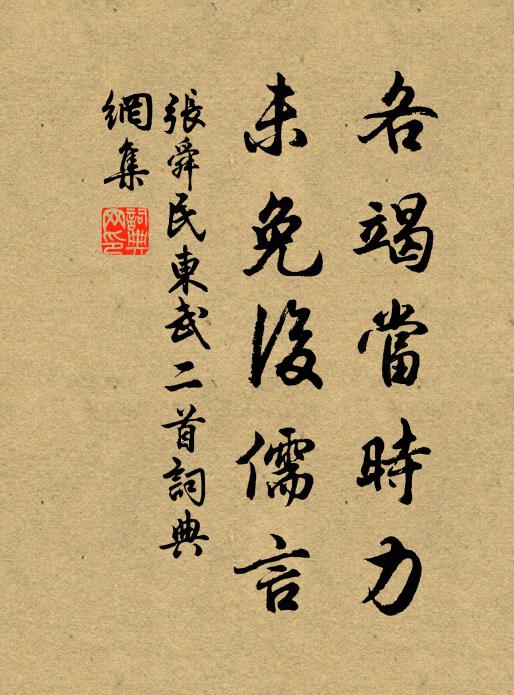 各竭當時力
未免後儒言
張舜民東武二首詞典
網集
詞典
网印